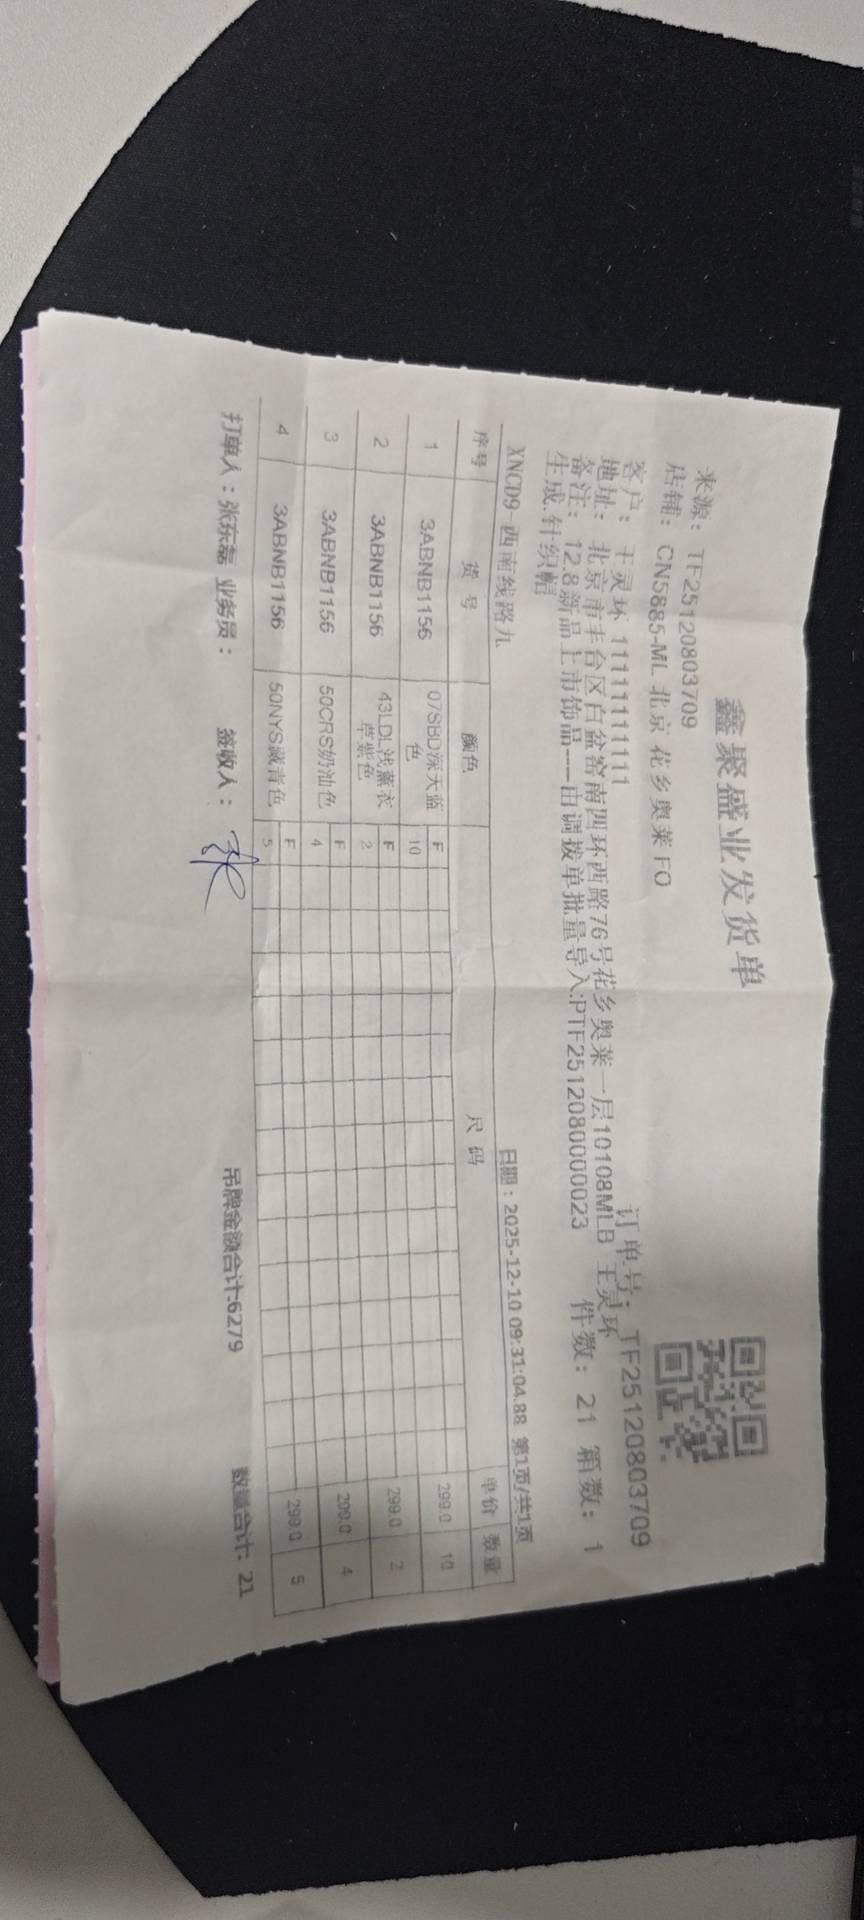 鑫聚盛业发货单
来源： TF25120803709
订单号： TF25120803709
店铺： CN5885-ML 北京 花乡奥莱 FO
客户： 王灵环 11111111111
地址： 北京市丰台区白盆窑南四环西路76号花乡奥莱一层10108MLB 王灵环
备注： 12.8新品上市饰品---由调拨单批量导入:PTF2512080000023 件数： 21 箱数： 1
生成.针织帽
XNCD9 西南线路九 日期：2025-12-10 09:31:04.88 第1页/共1页
序号 货号 颜色 尺码 单价 数量
1 3ABNB1156 07SBD深天蓝色 F 10 299.0 10
2 3ABNB1156 43LDL浅薰衣草紫色 F 2 299.0 2
3 3ABNB1156 50CRS奶油色 F 4 299.0 4
4 3ABNB1156 50NYS藏青色 F 5 299.0 5
打单人：张东磊 业务员： 签收人： 张 吊牌金额合计:6279 数量合计: 21